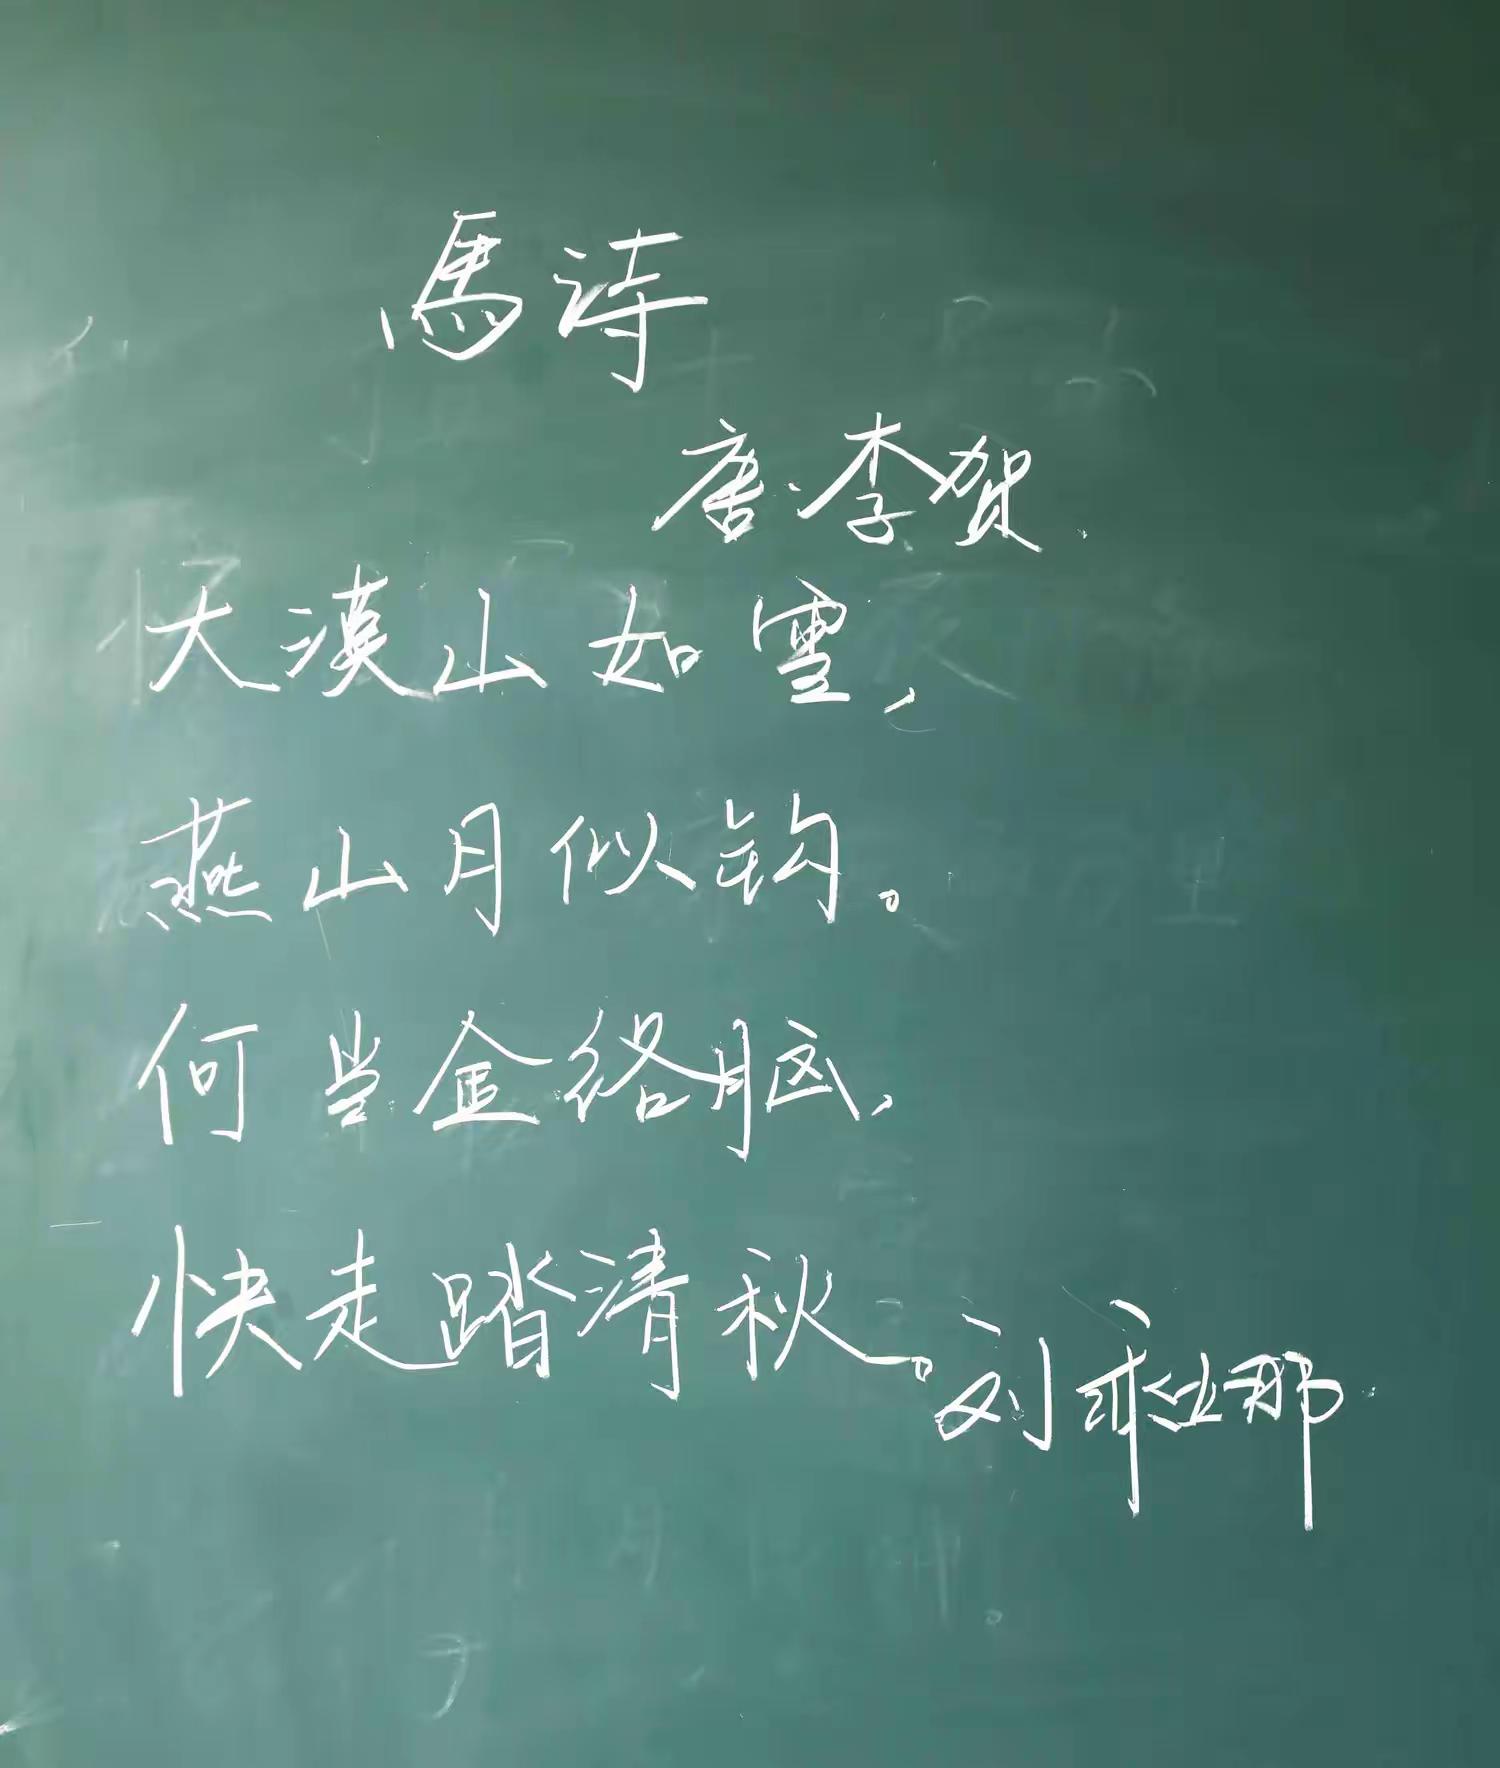 馬诗
唐·李贺
大漠山如雪，
燕山月似钩。
何当金络脑，
快走踏清秋。
刘 那